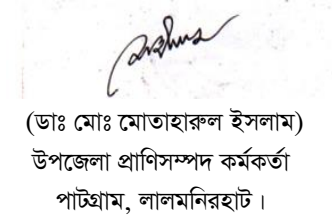 (ডাঃ মোঃ মোতাহারুল ইসলাম)
উপজেলা প্রাণিসম্পদ কর্মকর্তা
পাটগ্রাম, লালমনিরহাট।